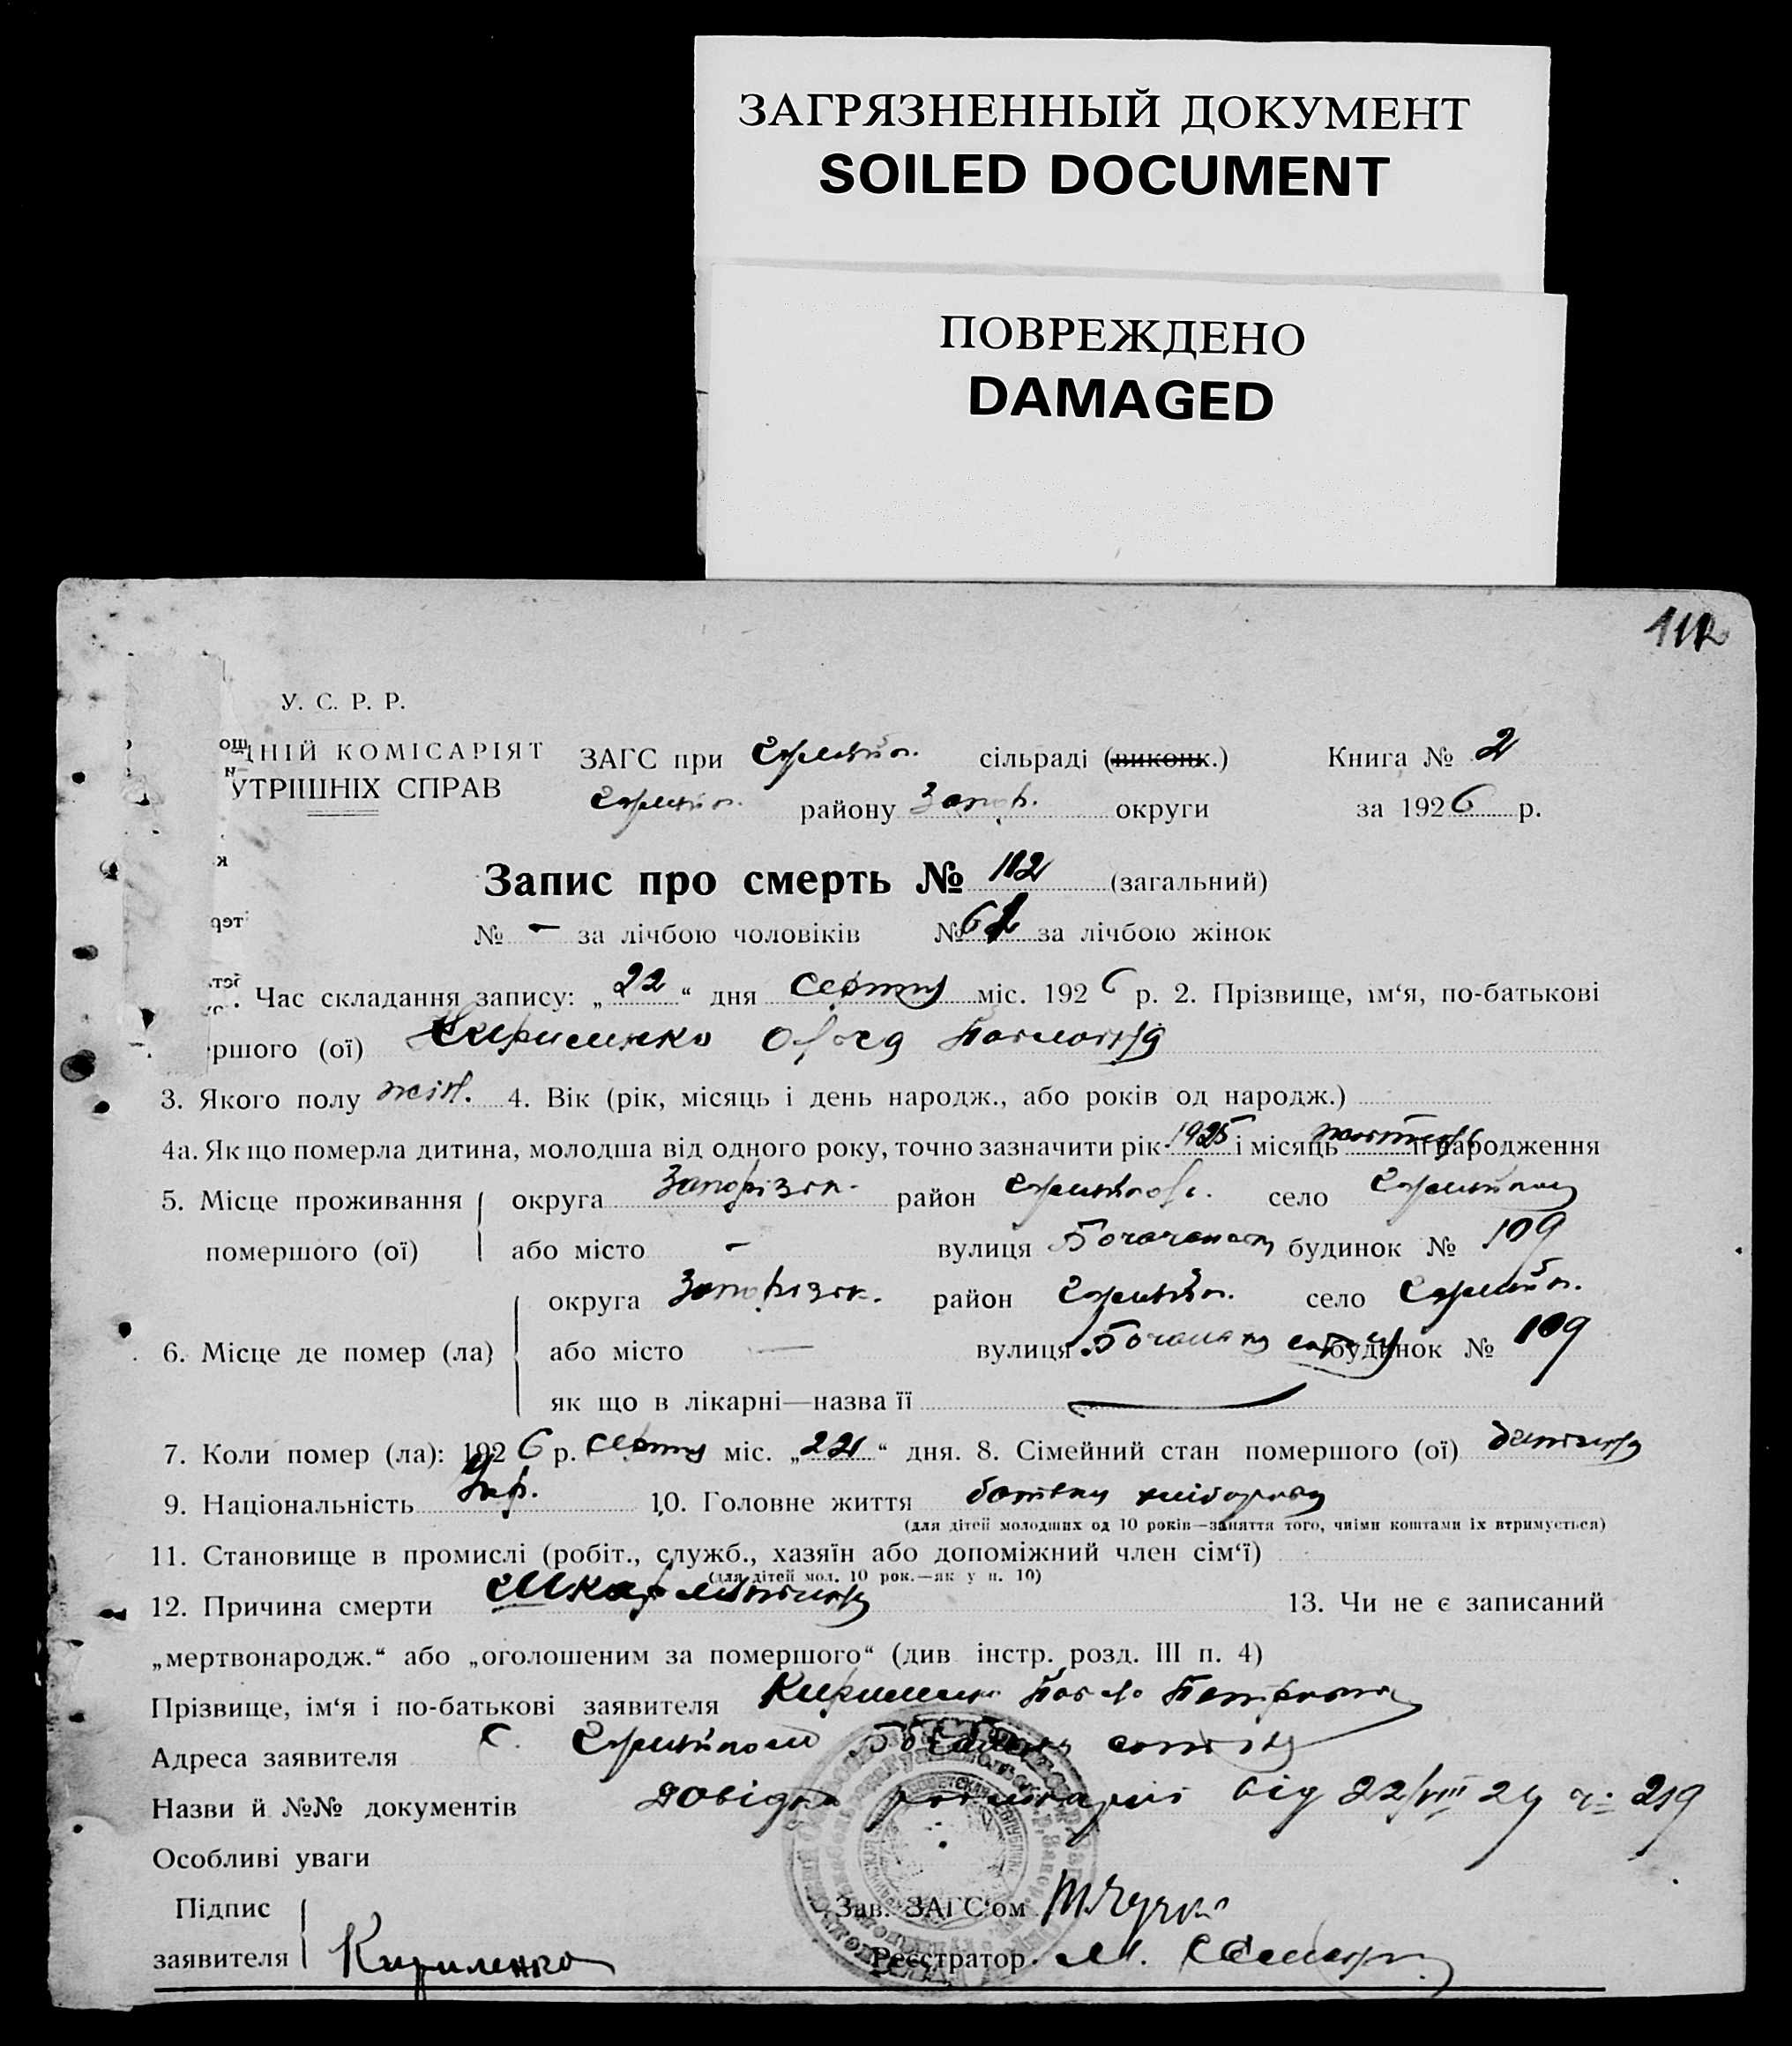 ЗАГРЯЗНЕННЫЙ ДОКУМЕНТ
SOILED DOCUMENT
ПОВРЕЖДЕНО
DAMAGED
112
У. С. Р. Р.
ДНІЙ КОМІСАРІЯТ
УТРІШНІХ СПРАВ
ЗАГС при сільраді (виконк.) Книга № 2
району Запор. округи за 1926 р.
Запис про смерть № 112 (загальний)
№ - за лічбою чоловіків № за лічбою жінок
. Час складання запису: „22“ дня Серпня міс. 1926 р. 2. Прізвище, ім‘я, по-батькові
ршого (ої) Кириленко Павловна
3. Якого полу жін. 4. Вік (рік, місяць і день народж., або років од народж.)
4а. Як що померла дитина, молодша від одного року, точно зазначити рік 1925 і місяць її народження
5. Місце проживання округа Запорізьк. район село
помершого (ої) або місто - вулиця будинок № 109
округа Запорізьк. район село
6. Місце де помер (ла) або місто — вулиця будинок № 109
як що в лікарні—назва її —
7. Коли помер (ла): 1926 р. Серпня міс. „22“ дня. 8. Сімейний стан помершого (ої) дитина
9. Національність Укр. 10. Головне життя батьки хлібороби
(для дітей молодших од 10 років—заняття того, чиїми коштами їх втримується)
11. Становище в промислі (робіт., служб., хазяїн або допоміжний член сім‘ї)
(для дітей мол. 10 рок.—як у п. 10)
12. Причина смерти Шкарлятина 13. Чи не є записаний
„мертвонародж.“ або „оголошеним за помершого“ (див інстр. розд. III п. 4)
Прізвище, ім‘я і по-батькові заявителя Кириленко Павло Петрович
Адреса заявителя с.
Назви й №№ документів Довідка від 22/VIII 219
Особливі уваги
Підпис
заявителя Кириленко
Зав. ЗАГС‘ом
Реєстратор М.